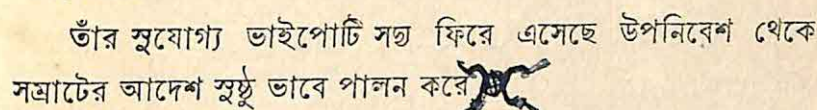 তাঁর সুযোগ্য ভাইপোটি সদ্য ফিরে এসেছে উপনিবেশ থেকে
সম্রাটের আদেশ সুষ্ঠু ভাবে পালন করে